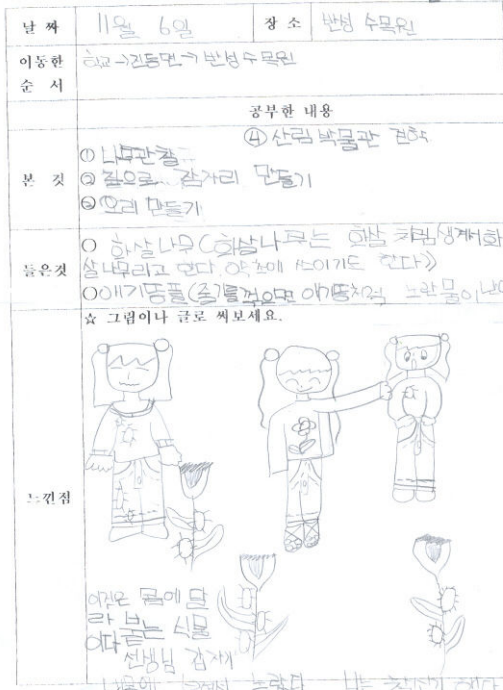 날 짜 11월 6일 장 소 반성 수목원
이동한 순 서 학교→진동면→반성수목원
공부한 내용
본 것 ④ 산림박물관 견학
① 나무관찰
② 짚으로 잠자리 만들기
③ 오리 만들기
들은것 ○ 화살나무(화살나무는 화살 처럼생겨서화
살나무라고 한다. 약초에 쓰이기도 한다)
○애기똥풀(줄기를꺾으면 애기똥처럼 노란물이
☆ 그림이나 글로 써보세요.
느낀점
이것은 몸에 달
라 붙는 식물
이다
선생님 갑자기
노랗다 나는